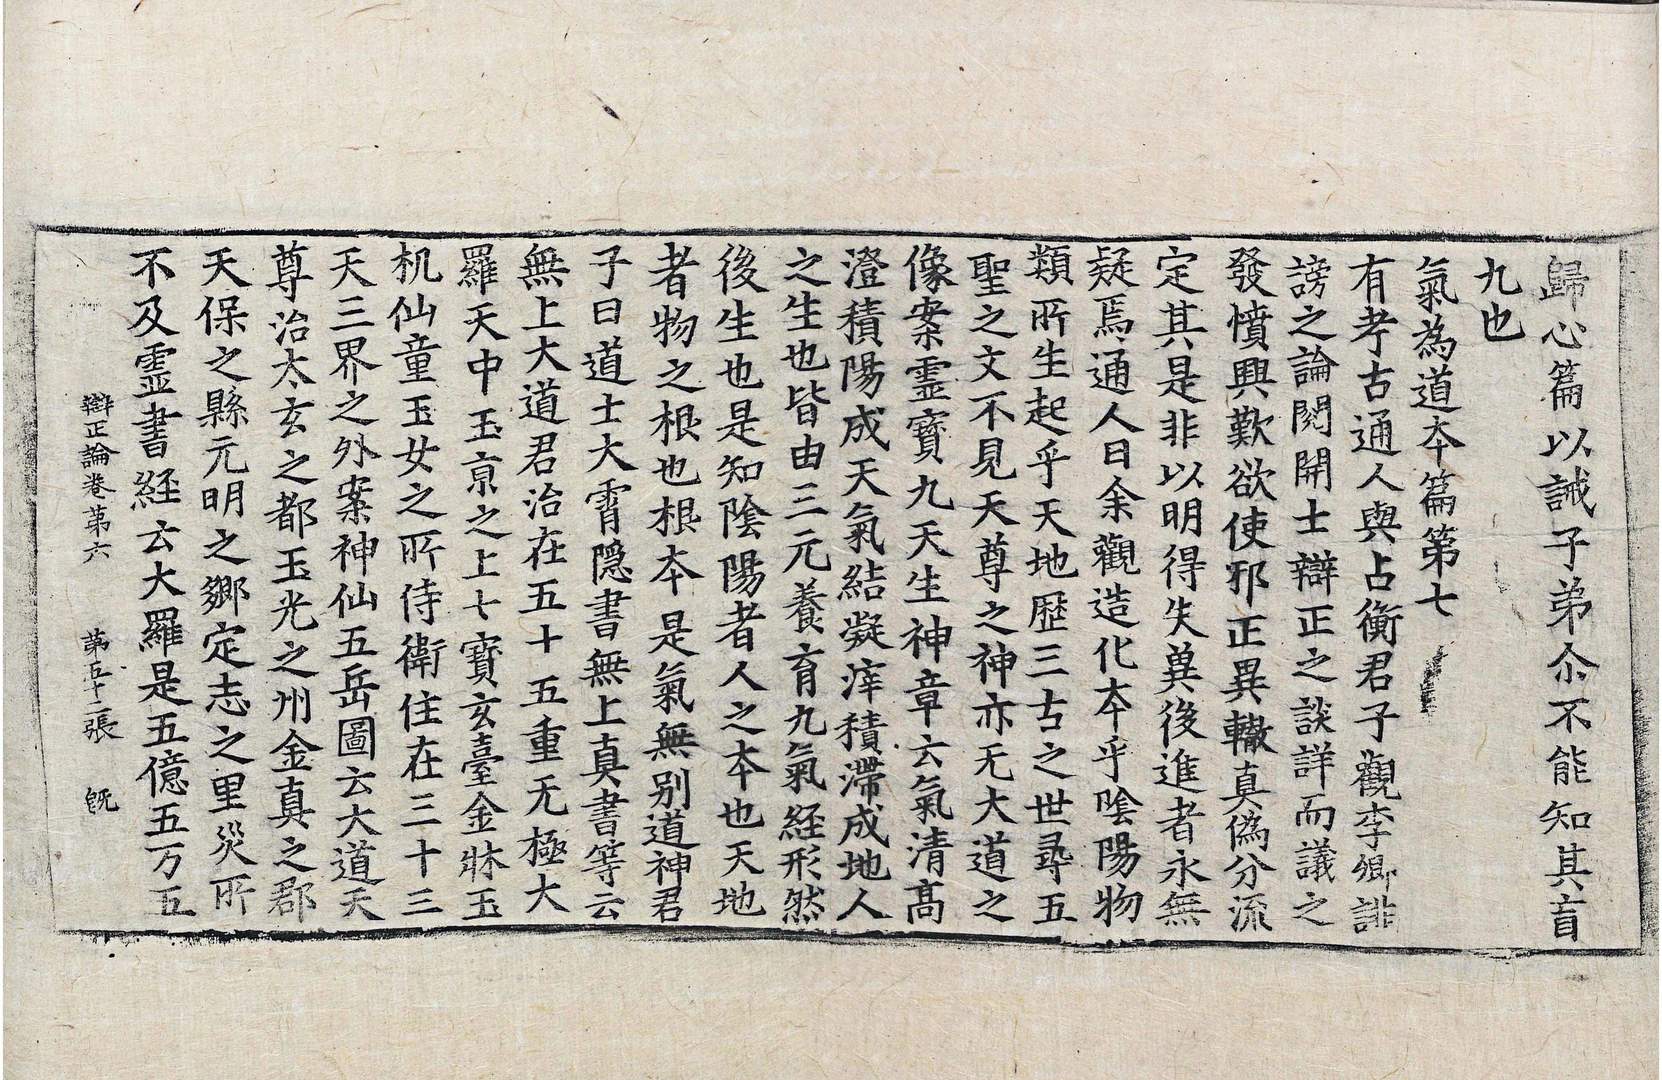 歸心篇以誡子弟尒不能知其盲
九也
氣為道本篇第七
有考古通人與占衡君子觀李卿誹
謗之論閱開士辯正之談詳而議之
發憤興歎欲使邪正異轍真偽分流
定其是非以明得失兾後進者永無
疑焉通人曰余觀造化本乎陰陽物
類所生起乎天地歷三古之世尋五
聖之文不見天尊之神亦无大道之
像案靈寶九天生神章云氣清高
澄積陽成天氣結凝滓積滯成地人
之生也皆由三元養育九氣経形然
後生也是知陰陽者人之本也天地
者物之根也根本是氣無別道神君
子曰道士大霄隱書無上真書等云
無上大道君治在五十五重无極大
羅天中玉京之上七寶玄臺金牀玉
机仙童玉女之所侍衛住在三十三
天三界之外案神仙五岳圖云大道天
尊治太玄之都玉光之州金真之郡
天保之縣元明之鄉定志之里災所
不及靈書経云大羅是五億五万五
辯正論卷第六 第五十二張 旣